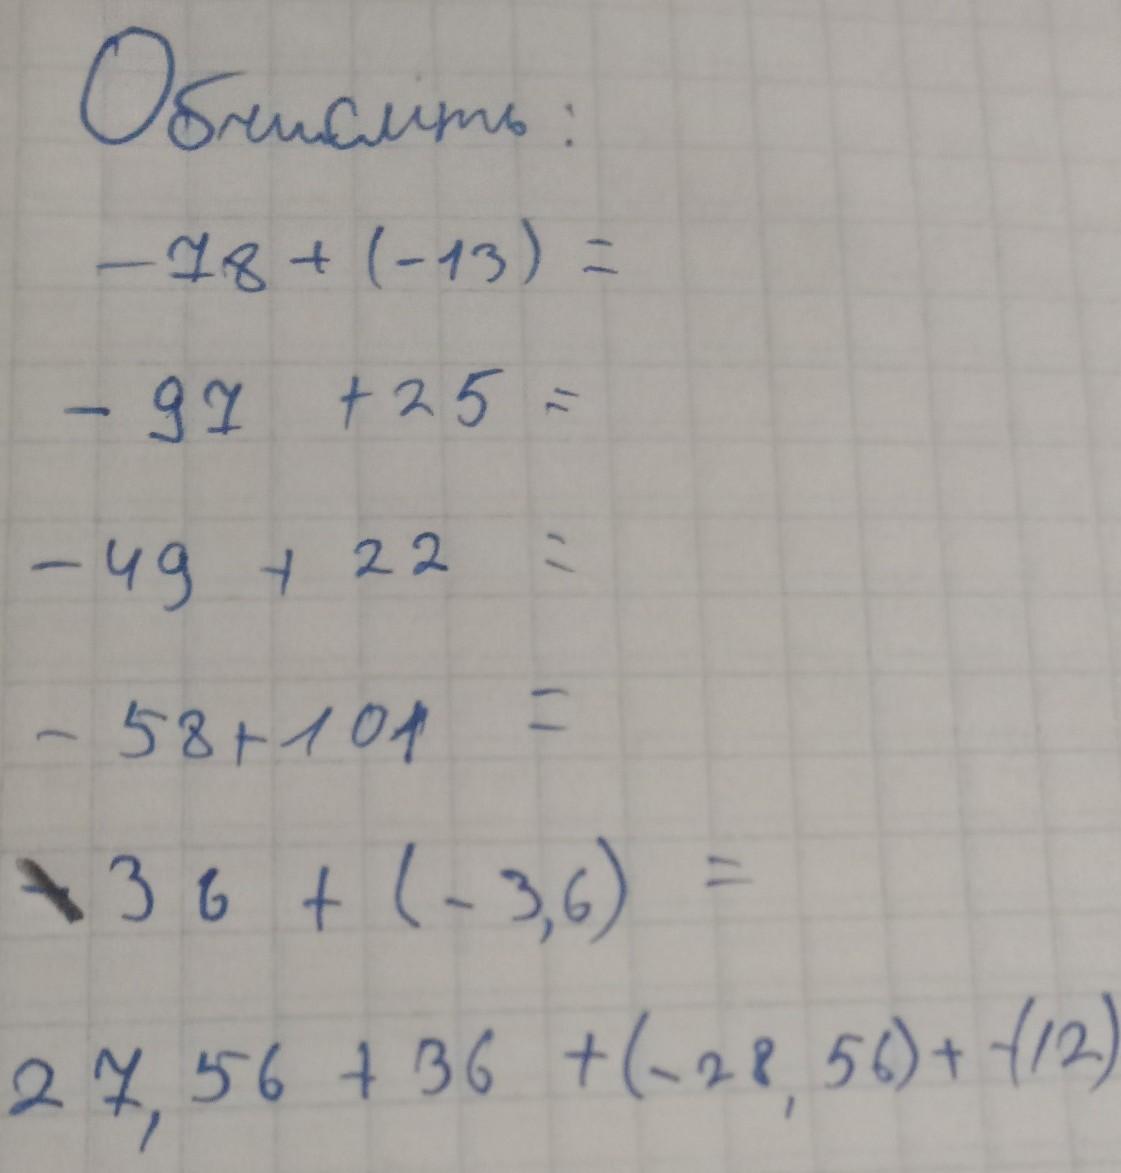 Обчисліть:
-78 + (-13) =
- 97 + 25 =
- 49 + 22 =
- 58 + 101 =
36 + (- 3,6) =
27,56 + 36 + (- 28,56) + -(12)